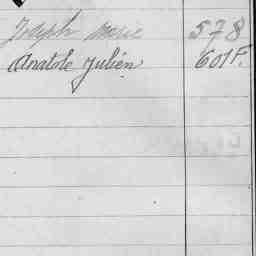 Joseph Marie 578
Anatole Julien 601F.